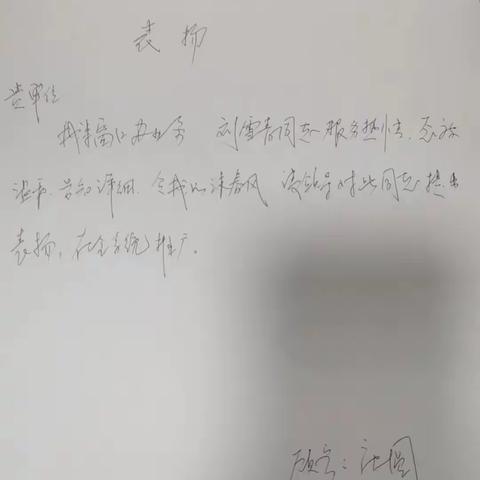 表扬
贵单位
我来窗口办业务 刘雪青同志服务热情、态度
温和、告知详细、令我如沐春风 请领导对此同志提出
表扬，在全系统推广。
顾客：